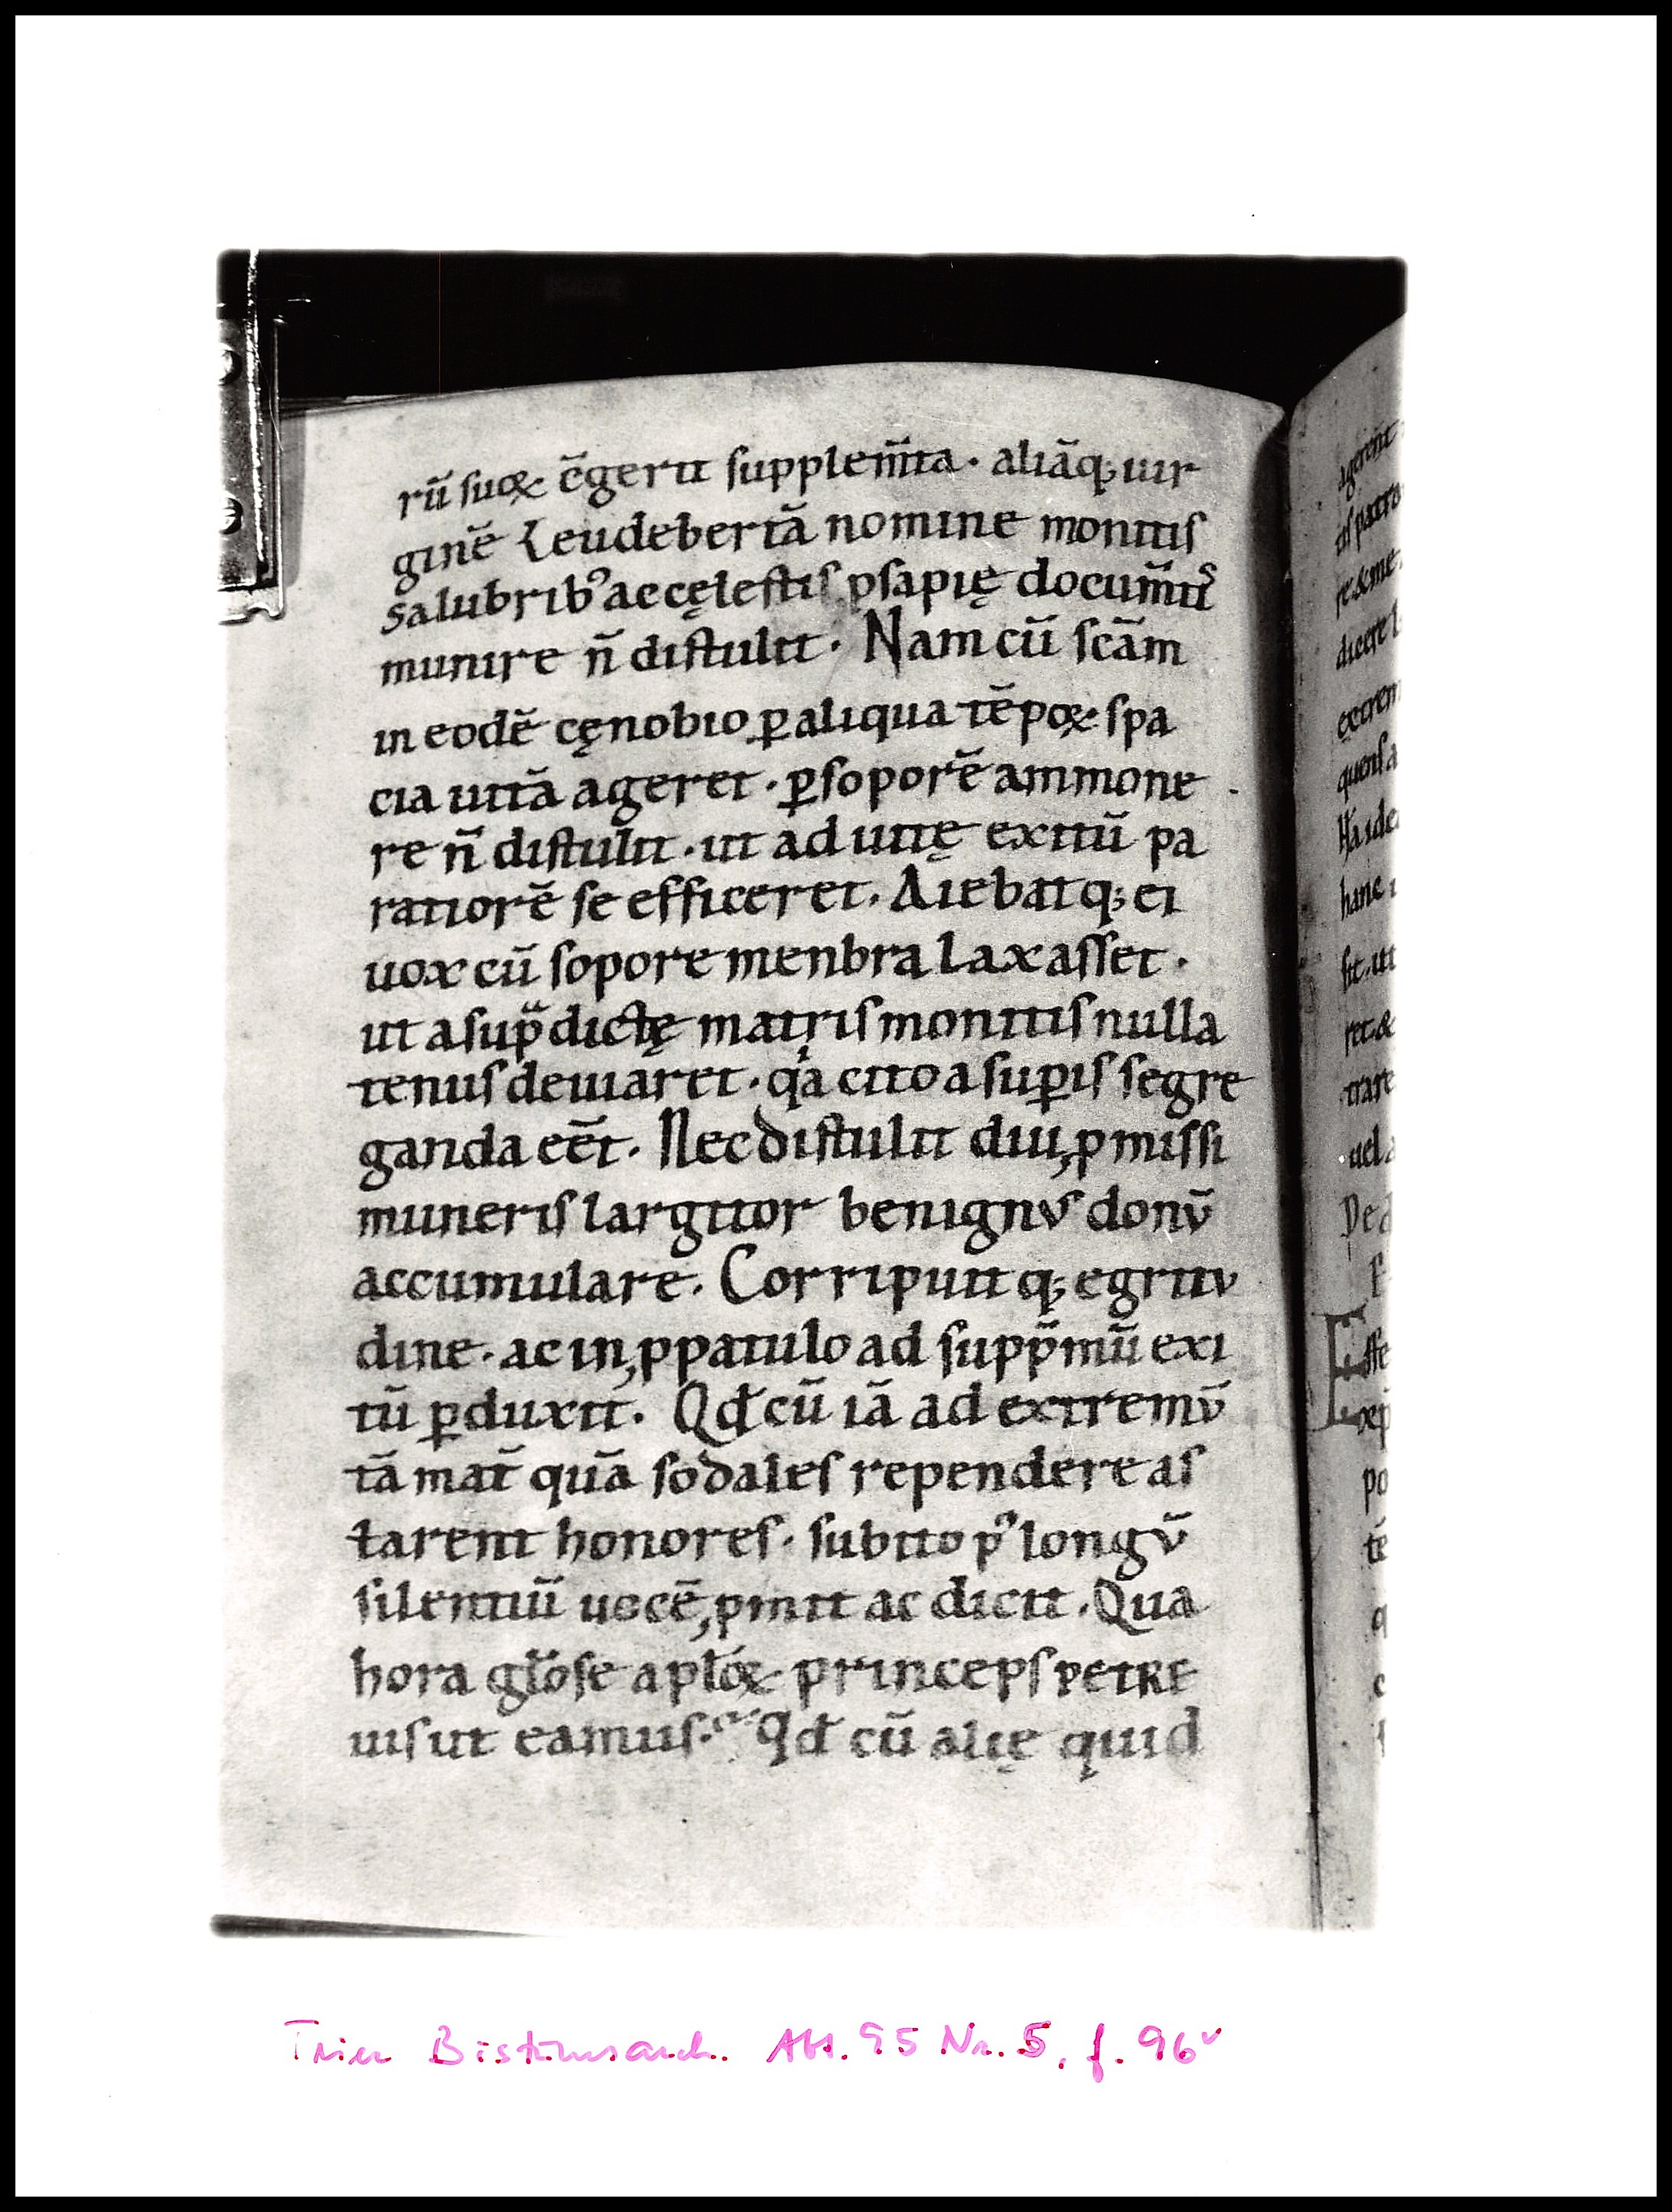 rũ suoꝝ c̃gerit supplem̃ta · aliãq; uir
ginẽ Leudebertã nomine monitis
salubrib⁹ ac cęlestis ꝓsapię docum̃tis
munire ñ distulit · Nam cũ scãm
in eodẽ cęnobio ꝑ aliqua tẽpoꝝ spa
cia uitã ageret · ꝑ soporẽ ammone
re ñ distulit · ut ad uitę exitũ pa
ratiorẽ se efficeret. Aiebatq; ei
uox cũ sopore menbra laxasset ·
ut a sup̃dictę matris monitis nulla
tenus deuiaret · qͥa cito a suꝑis segre
ganda eẽt. Nec distulit diu ꝓmissi
muneris largitor benignus donũ
accumulare. Corripuit q; egritu
dine · ac in ꝓpatulo ad supp̃mũ exi
tũ ꝑduxit. Qđ cũ iã ad extremũ
tã mat̃ quã sodales rependere as
tarent honores · subito p⁹ longũ
silentiũ uocẽ ꝓmit ac dicit. Qua
hora gl̃ose aplõꝝ princeps PETRE
uis ut eamus. Qđ cũ alię quid
agerent
Trier Bistumsarch. Abt. 95 Nr. 5, f. 96v